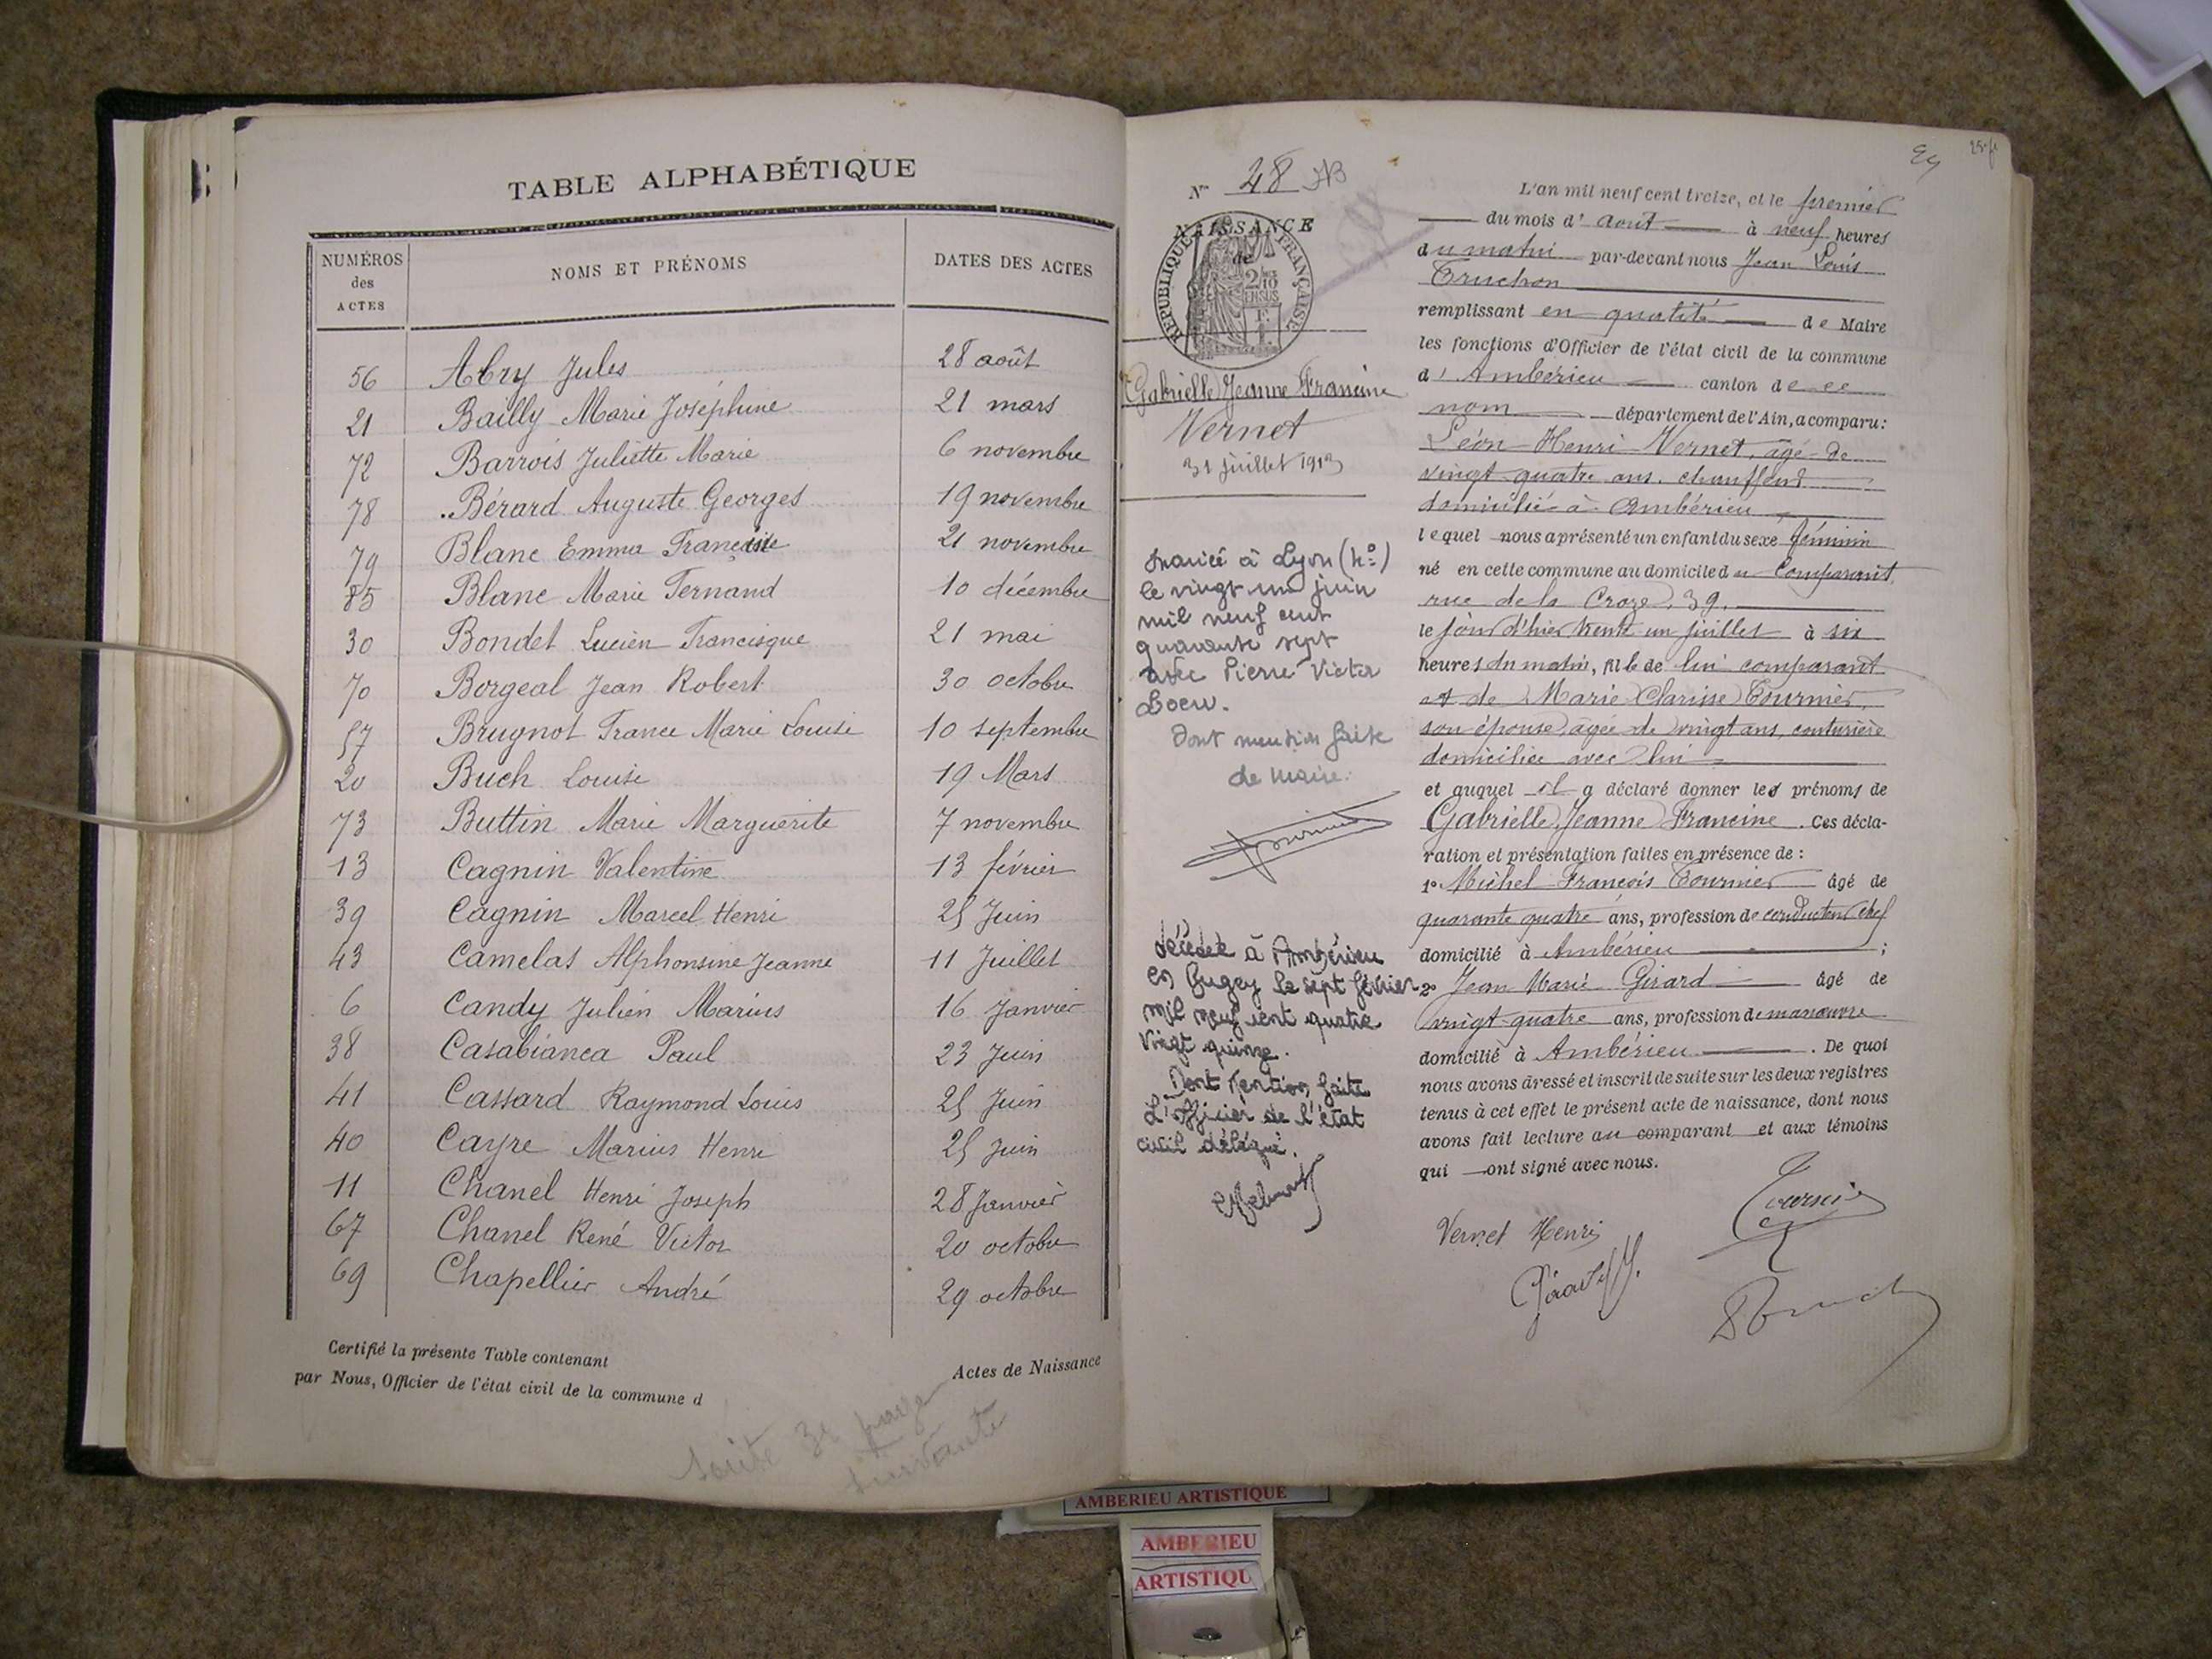 TABLE ALPHABÉTIQUE
NUMÉROS des ACTES NOMS ET PRÉNOMS DATES DES ACTES
56 Abry Jules 28 août
21 Bailly Marie Joséphine 21 mars
72 Barrois Juliette Marie 6 novembre
78 Bérard Auguste Georges 19 novembre
79 Blanc Emma Francine 21 novembre
85 Blanc Marie Fernand 10 décembre
30 Bondet Lucien Francisque 21 mai
70 Borgeal Jean Robert 30 octobre
57 Brugnot France Marie Louise 10 septembre
20 Buch Louise 19 Mars
73 Buttin Marie Marguerite 7 novembre
13 Cagnin Valentine 13 février
39 Cagnin Marcel Henri 25 Juin
43 Camelas Alphonsine Jeanne 11 Juillet
6 Candy Julien Marius 16 Janvier
38 Casabianca Paul 23 Juin
41 Cassard Raymond Louis 25 Juin
40 Cayre Marius Henri 25 Juin
11 Chanel Henri Joseph 28 Janvier
67 Chanel René Victor 20 octobre
69 Chapellier André 29 octobre
Certifié la présente Table contenant Actes de Naissance
par Nous, Officier de l'état civil de la commune d
suite 3e page
suivante
N° 48
NAISSANCE
de
RÉPUBLIQUE FRANÇAISE
2/10 EN SUS
Gabrielle Jeanne Francine
Vernet
31 juillet 1913
Mariée à Lyon
le vingt un juin
mil neuf cent
quarante sept
avec Pierre Victor
Loew.
Dont mention faite
Le Maire.
décédée à Ambérieu
en Bugey le sept février
mil neuf cent quatre
vingt quinze.
Dont Mention faite
L'officier de l'état
civil délégué.
L'an mil neuf cent treize, et le premier
du mois d' août à neuf heures
du matin par-devant nous Jean Louis
Truchon
remplissant en qualité de Maire
les fonctions d'Officier de l'état civil de la commune
d' Ambérieu canton de ce
nom département de l'Ain, a comparu:
Léon Henri Vernet, âgé de
vingt quatre ans, chauffeur
domicilié à Ambérieu
lequel nous a présenté un enfant du sexe féminin
né en cette commune au domicile du Comparant
rue de la Croze, 39,
le jour d'hier trente un juillet à six
heures du matin, fille de lui comparant
et de Marie Clarisse Tournier,
son épouse, âgée de vingt ans, couturière
domiciliée avec lui
et auquel il a déclaré donner les prénoms de
Gabrielle Jeanne Francine. Ces décla-
ration et présentation faites en présence de:
1° Michel François Tournier âgé de
quarante quatre ans, profession de conducteur chef
domicilié à Ambérieu ;
2° Jean Marie Girard âgé de
vingt-quatre ans, profession de manœuvre
domicilié à Ambérieu. De quoi
nous avons dressé et inscrit de suite sur les deux registres
tenus à cet effet le présent acte de naissance, dont nous
avons fait lecture au comparant et aux témoins
qui ont signé avec nous.
Vernet Henri
AMBERIEU ARTISTIQUE
AMBERIEU
ARTISTIQU